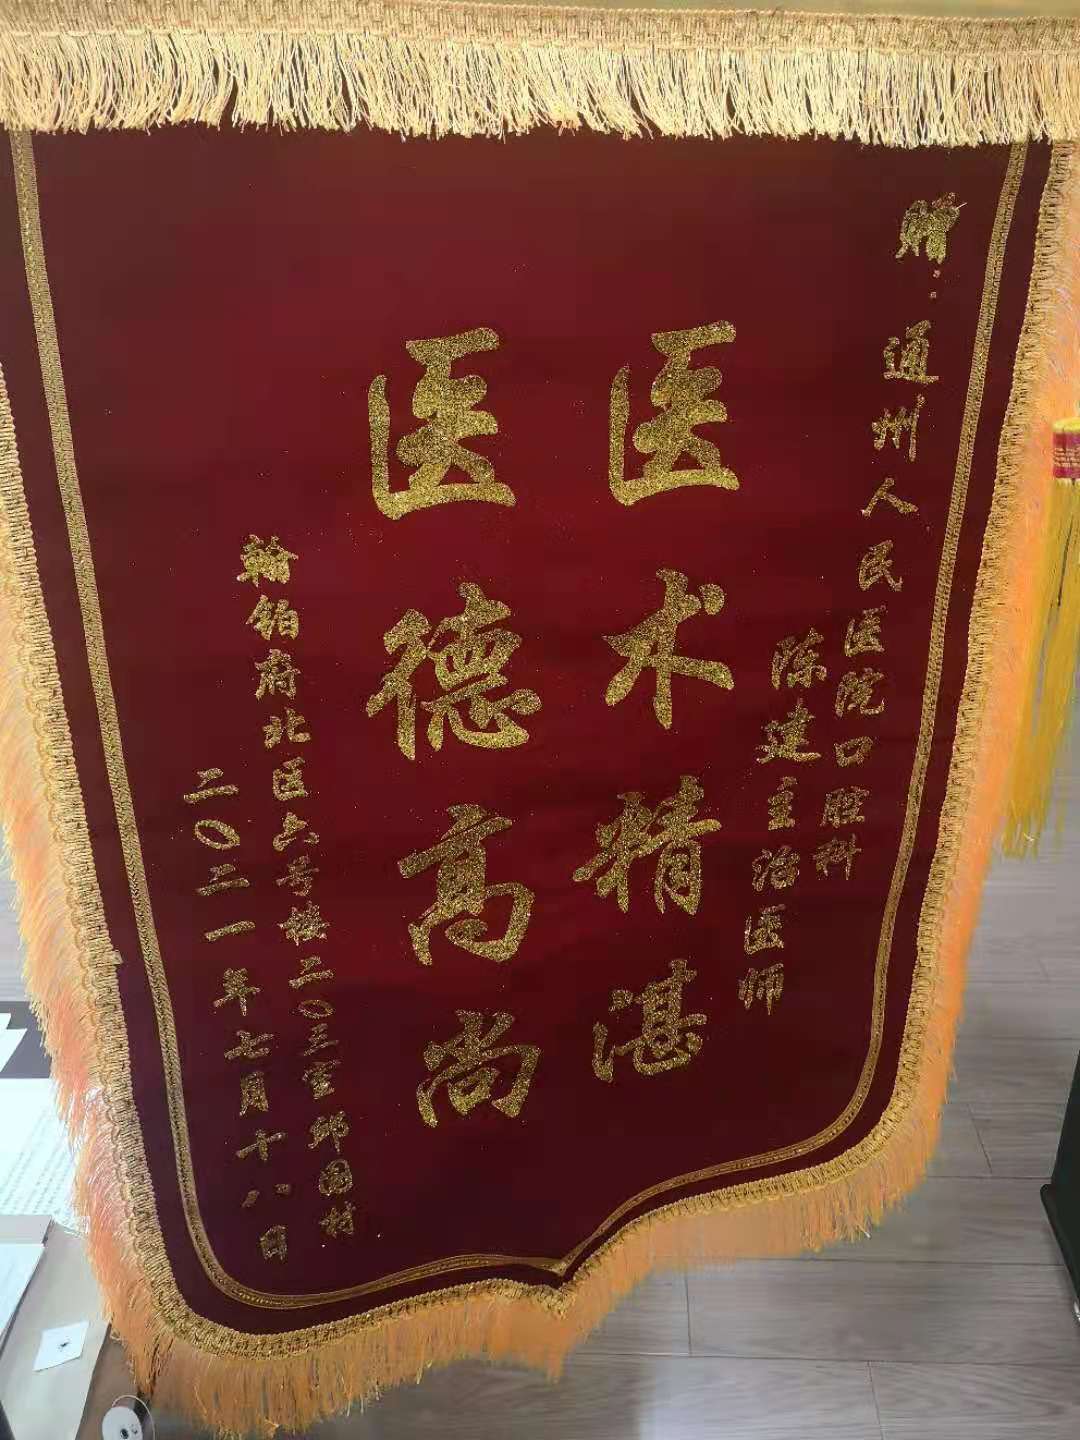 赠：通州人民医院口腔科
陈建主治医师
医术精湛
医德高尚
翰铂府北区六号楼二〇三室邱国村
二〇二一年七月十八日